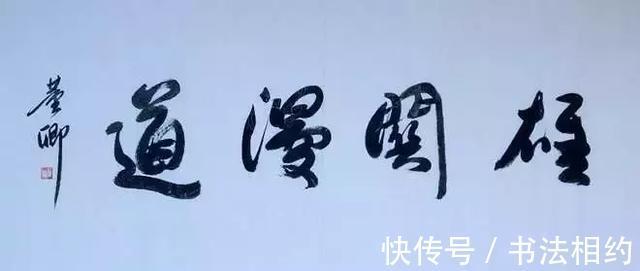 雄關漫道
董卿
快传号 / 书法相约